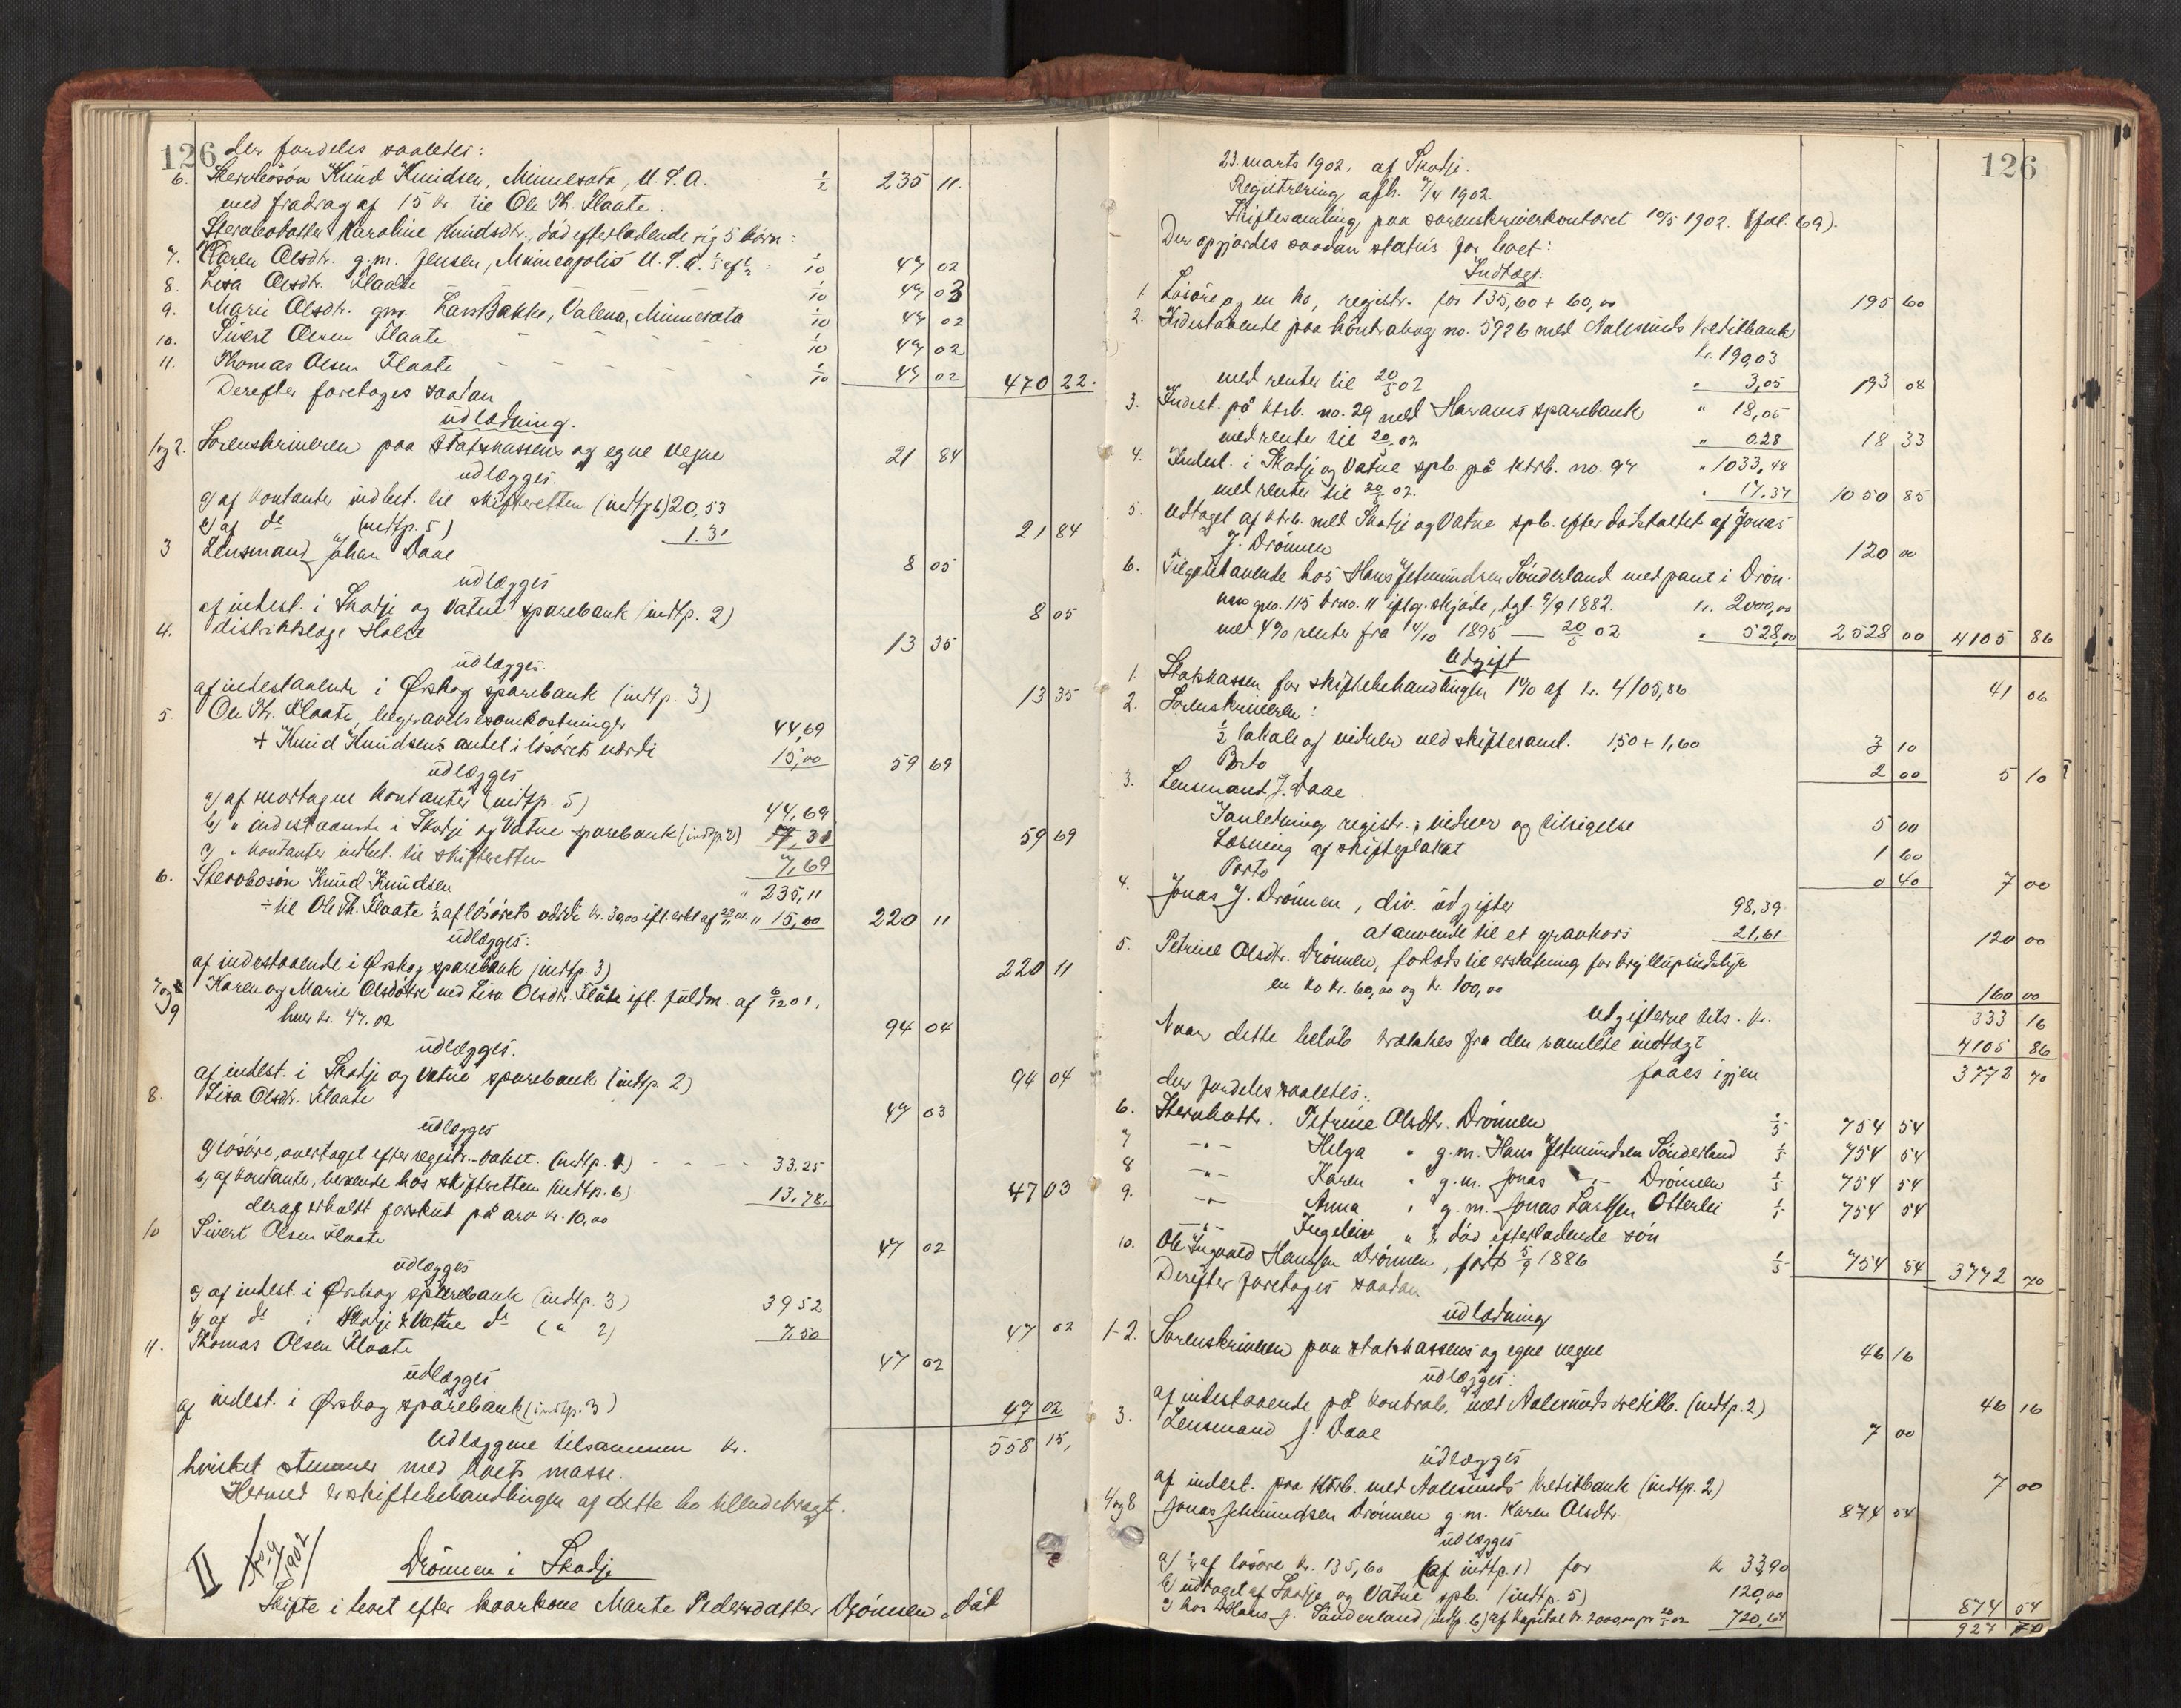 126 der fordeles saaledes:
6. Stervbosøn Knud Knudsen, Minnesota, U.S.A. 1/2 235 11.
med fradrag af 15 kr. til Ole Th. Flaate.
Stervbodatter Karoline Knudsdtr., død efterladende sig 5 børn:
7. Karen Olsdtr. g.m. Jensen, Minneapolis U.S.A. 1/5 af 1/2 = 1/10 47 02
8. Lisa Olsdtr. Flaate 1/10 47 03
9. Marie Olsdtr. gm. Lars Bakke, Valena, Minnesota 1/10 47 02
10. Sivert Olsen Flaate 1/10 47 02
11. Thomas Olsen Flaate 1/10 47 02 470 22.
Derefter foretages saadan
udlodning.
1 og 2. Sorenskriveren paa statskassens og egne vegne 21 84
udlægges.
a) af kontanter indbet. til skifteretten (indtp. 6) 20,53
b) af do (indtp. 5) 1.31 21 84
3 Lensmand Johan Daae 8 05
udlægges
af indest. i Skodje og Vatne sparebank (indtp. 2) 8 05
4. distriktslæge Holte 13 35
udlægges.
af indestaaende i Ørskog sparebank (indtp. 3) 13 35
5. Ole Th. Flaate, begravelsesomkostninger 44,69
+ Knud Knudsens andel i løsørets værdi 15,00 59 69
udlægges
a) af mortagne kontanter (indtp. 5) 44,69
b) " indestaaende i Skodje og Vatne sparebank (indtp. 2) 7,31
c) " kontanter indbet. til skifteretten 7,69 59 69
6. Stervbosøn Knud Knudsen " 235,11
÷ til Ole Th. Flaate 1/2 af løsørets værdi kr. 30,00 ifl. erkl. af 22/11 01. " 15,00 220 11
udlægges.
af indestaaende i Ørskog sparebank (indtp. 3) 220 11
7 og 9 Karen og Marie Olsdøtre ved Lisa Olsdtr. Flåte ifl. fuldm. af 6/12 01,
hver kr. 47.02 94 04
udlægges.
af indest. i Skodje og Vatne sparebank (indtp. 2) 94 04
8. Lisa Olsdtr. Flaate 47 03
udlægges
a) løsøre, overtaget efter registr.-takst. (indtp. 1) - - - - 33.25
b) af kontanter, beroende hos skifteretten (indtp. 6) 13.78. 47 03
deraf erholdt forskud på arv kr. 10,00
10 Sivert Olsen Flaate 47 02
udlægges
a) af indest. i Ørskog sparebank (indtp. 3) 39 52
b) af do i Skodje & Vatne do ( " 2) 7,50 47 02
11. Thomas Olsen Flaate 47 02
udlægges
af indest. i Ørskog sparebank (indtp. 3) 47 02
Udlæggene tilsammen kr. 558 15,
hvilket stemmer med boets masse.
Hermed er skiftebehandlingen af dette bo tilendebragt.
II 1902
Drønnen i Skodje
Skifte i boet efter kaarkone Marte Pedersdatter Drønnen, død
126
23. marts 1902, af Skodje.
Registrering afh. 7/4 1902.
Skiftesamling paa sorenskriverkontoret 10/5 1902. (fol. 69).
Der opgjordes saadan status for boet:
Indtægt:
1. Løsøre og en ko, registr. for 135,60 + 60,00 195 60
2. Indestaaende paa kontrabog no. 5926 med Aalesunds kreditbank
kr. 190,03
med renter til 20/5 02 " 3,05 193 08
3. Indest. på ktrb. no. 29 med Harams sparebank " 18,05
med renter til 20/5 02 " 0.28 18 33
4. Indest. i Skodje og Vatne spb. på ktrb. no. 97 " 1033,48
med renter til 20/5 02. " 17.37 1050 85
5. Udtaget af ktrb. med Skodje og Vatne spb. efter dødsfaldet af Jonas
J. Drønnen 120 00
6. Tilgodehavende hos Hans Jetmundsen Sønderland med pant i Drøn-
nen gno. 115 brno. 11 iflg. skjøde, tgl. 9/9 1882. kr. 2000,00
med 4% renter fra 14/10 1895 — 20/5 02 " 528,00 2528 00 4105 86
Udgift
1. Statskassen for skiftebehandlingen 1% af kr. 4105,86 41 06
2. Sorenskriveren:
1/2 lokale og vidner ved skiftesaml. 1,50 + 1,60 3 10
Porto 2 00 5 10
3. Lensmand J. Daae
Ianledning registr.; vidner og tilsigelse 5 00
Læsning af skifteplakat 1 60
Porto 0 40 7 00
4. Jonas J. Drønnen, div. udgifter 98,39
at anvende til et gravkors 21,61 120 00
5. Petrine Olsdtr. Drønnen, forlods til erstatning for bryllupsudstyr
en ko kr. 60,00 og kr. 100,00 160 00
Udgifterne tils. kr. 333 16
Naar dette beløb trækkes fra den samlede indtægt 4105 86
faaes igjen 3772 70
der fordeles saaledes:
6. Stervbodtr. Petrine Olsdtr. Drønnen 1/5 754 54
7 -"- Helga " g.m. Hans Jetmundsen Sønderland 1/5 754 54
8 -"- Karen " g.m. Jonas -"- Drønnen 1/5 754 54
9. -"- Anna " g.m. Jonas Larssen Otterlei 1/5 754 54
-"- Ingeleiv " er død efterladende søn
10. Ole Ingvald Hanssen Drønnen, født 5/9 1886 1/5 754 54 3772 70
Derefter foretages saadan
udlodning
1-2. Sorenskriveren paa statskassens og egne vegne 46 16
udlægges:
af indestaaende på kontrab. med Aalesunds kreditb. (indtp. 2) 46 16
3. Lensmand J. Daae 7 00
udlægges
af indest. paa ktrb. med Aalesunds kreditbank (indtp. 2) 7 00
4 og 8 Jonas Jetmundsen Drønnen g.m. Karen Olsdtr. 874 54
udlægges
a) 1/4 af løsøre kr. 135,60 (af indtp. 1) for kr 33,90
b) udtaget af Skodje og Vatne spb. (indtp. 5) 120,00
c) hos Hans J. Sønderland (indtp. 6) af kapital kr. 2000,00 pr 20/5 02 720,64 874 54
927 70